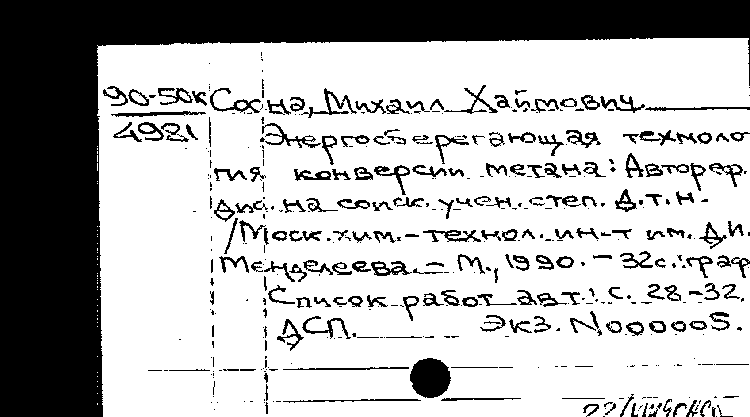 90-50к Сосна, Михаил Хаймович.
4921 Энергосберегающая техноло
гия конверсии метана: Автореф.
дис. на соиск. учен. степ. д.т.н.
/Моск. хим.-технол. ин-т им. Д.И.
Менделеева. - М., 1990. - 32с.: граф
Список работ авт.: с. 28-32.
ДСП. Экз. N000005.